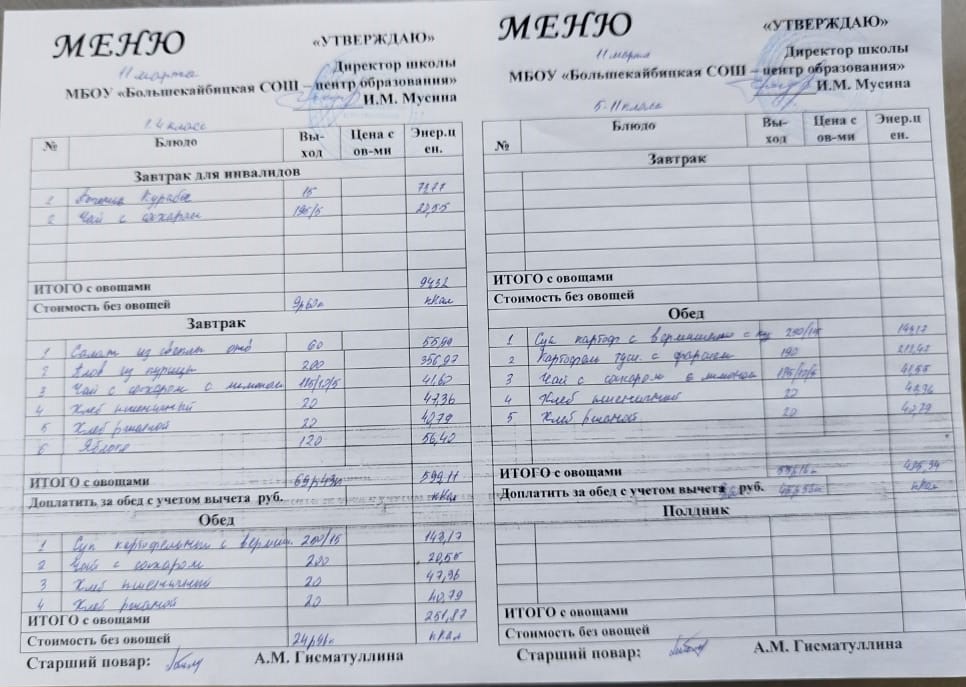 МЕНЮ
«УТВЕРЖДАЮ»
11 марта
Директор школы
МБОУ «Большекайбицкая СОШ – центр образования»
И.М. Мусина
1-4 класс
№ Блюдо Вы-ход Цена с ов-ми Энер.ц ен.
Завтрак для инвалидов
1 Курабье 15
2 Чай с сахаром 195/5
ИТОГО с овощами 94,32
Стоимость без овощей ккал
Завтрак
1 Салат из свеклы 60
2 Плов из курицы 200 356,97
3 Чай с сахаром с лимоном 41,60
4 Хлеб пшеничный 20 47,36
5 Хлеб ржаной 20 40,79
6 Яблоко 120 56,40
ИТОГО с овощами 69р43к 599,11
Доплатить за обед с учетом вычета руб. ккал
Обед
1 Суп картофельный с вермиш. 250/15
2 Чай с сахаром 200
3 Хлеб пшеничный 20
4 Хлеб ржаной 20 40,79
ИТОГО с овощами 251,87
Стоимость без овощей ккал
Старший повар: А.М. Гисматуллина
МЕНЮ
«УТВЕРЖДАЮ»
11 марта
Директор школы
МБОУ «Большекайбицкая СОШ – центр образования»
И.М. Мусина
5-11 класс
№ Блюдо Вы-ход Цена с ов-ми Энер.ц ен.
Завтрак
ИТОГО с овощами
Стоимость без овощей
Обед
1 Суп картоф с вермишелью с
2 Картофель туш. с фаршем 190
3 Чай с сахаром с лимоном 41,55
4 Хлеб пшеничный 20
5 Хлеб ржаной 20 40,79
ИТОГО с овощами
Доплатить за обед с учетом вычета руб. ккал
Полдник
ИТОГО с овощами
Стоимость без овощей
Старший повар: А.М. Гисматуллина